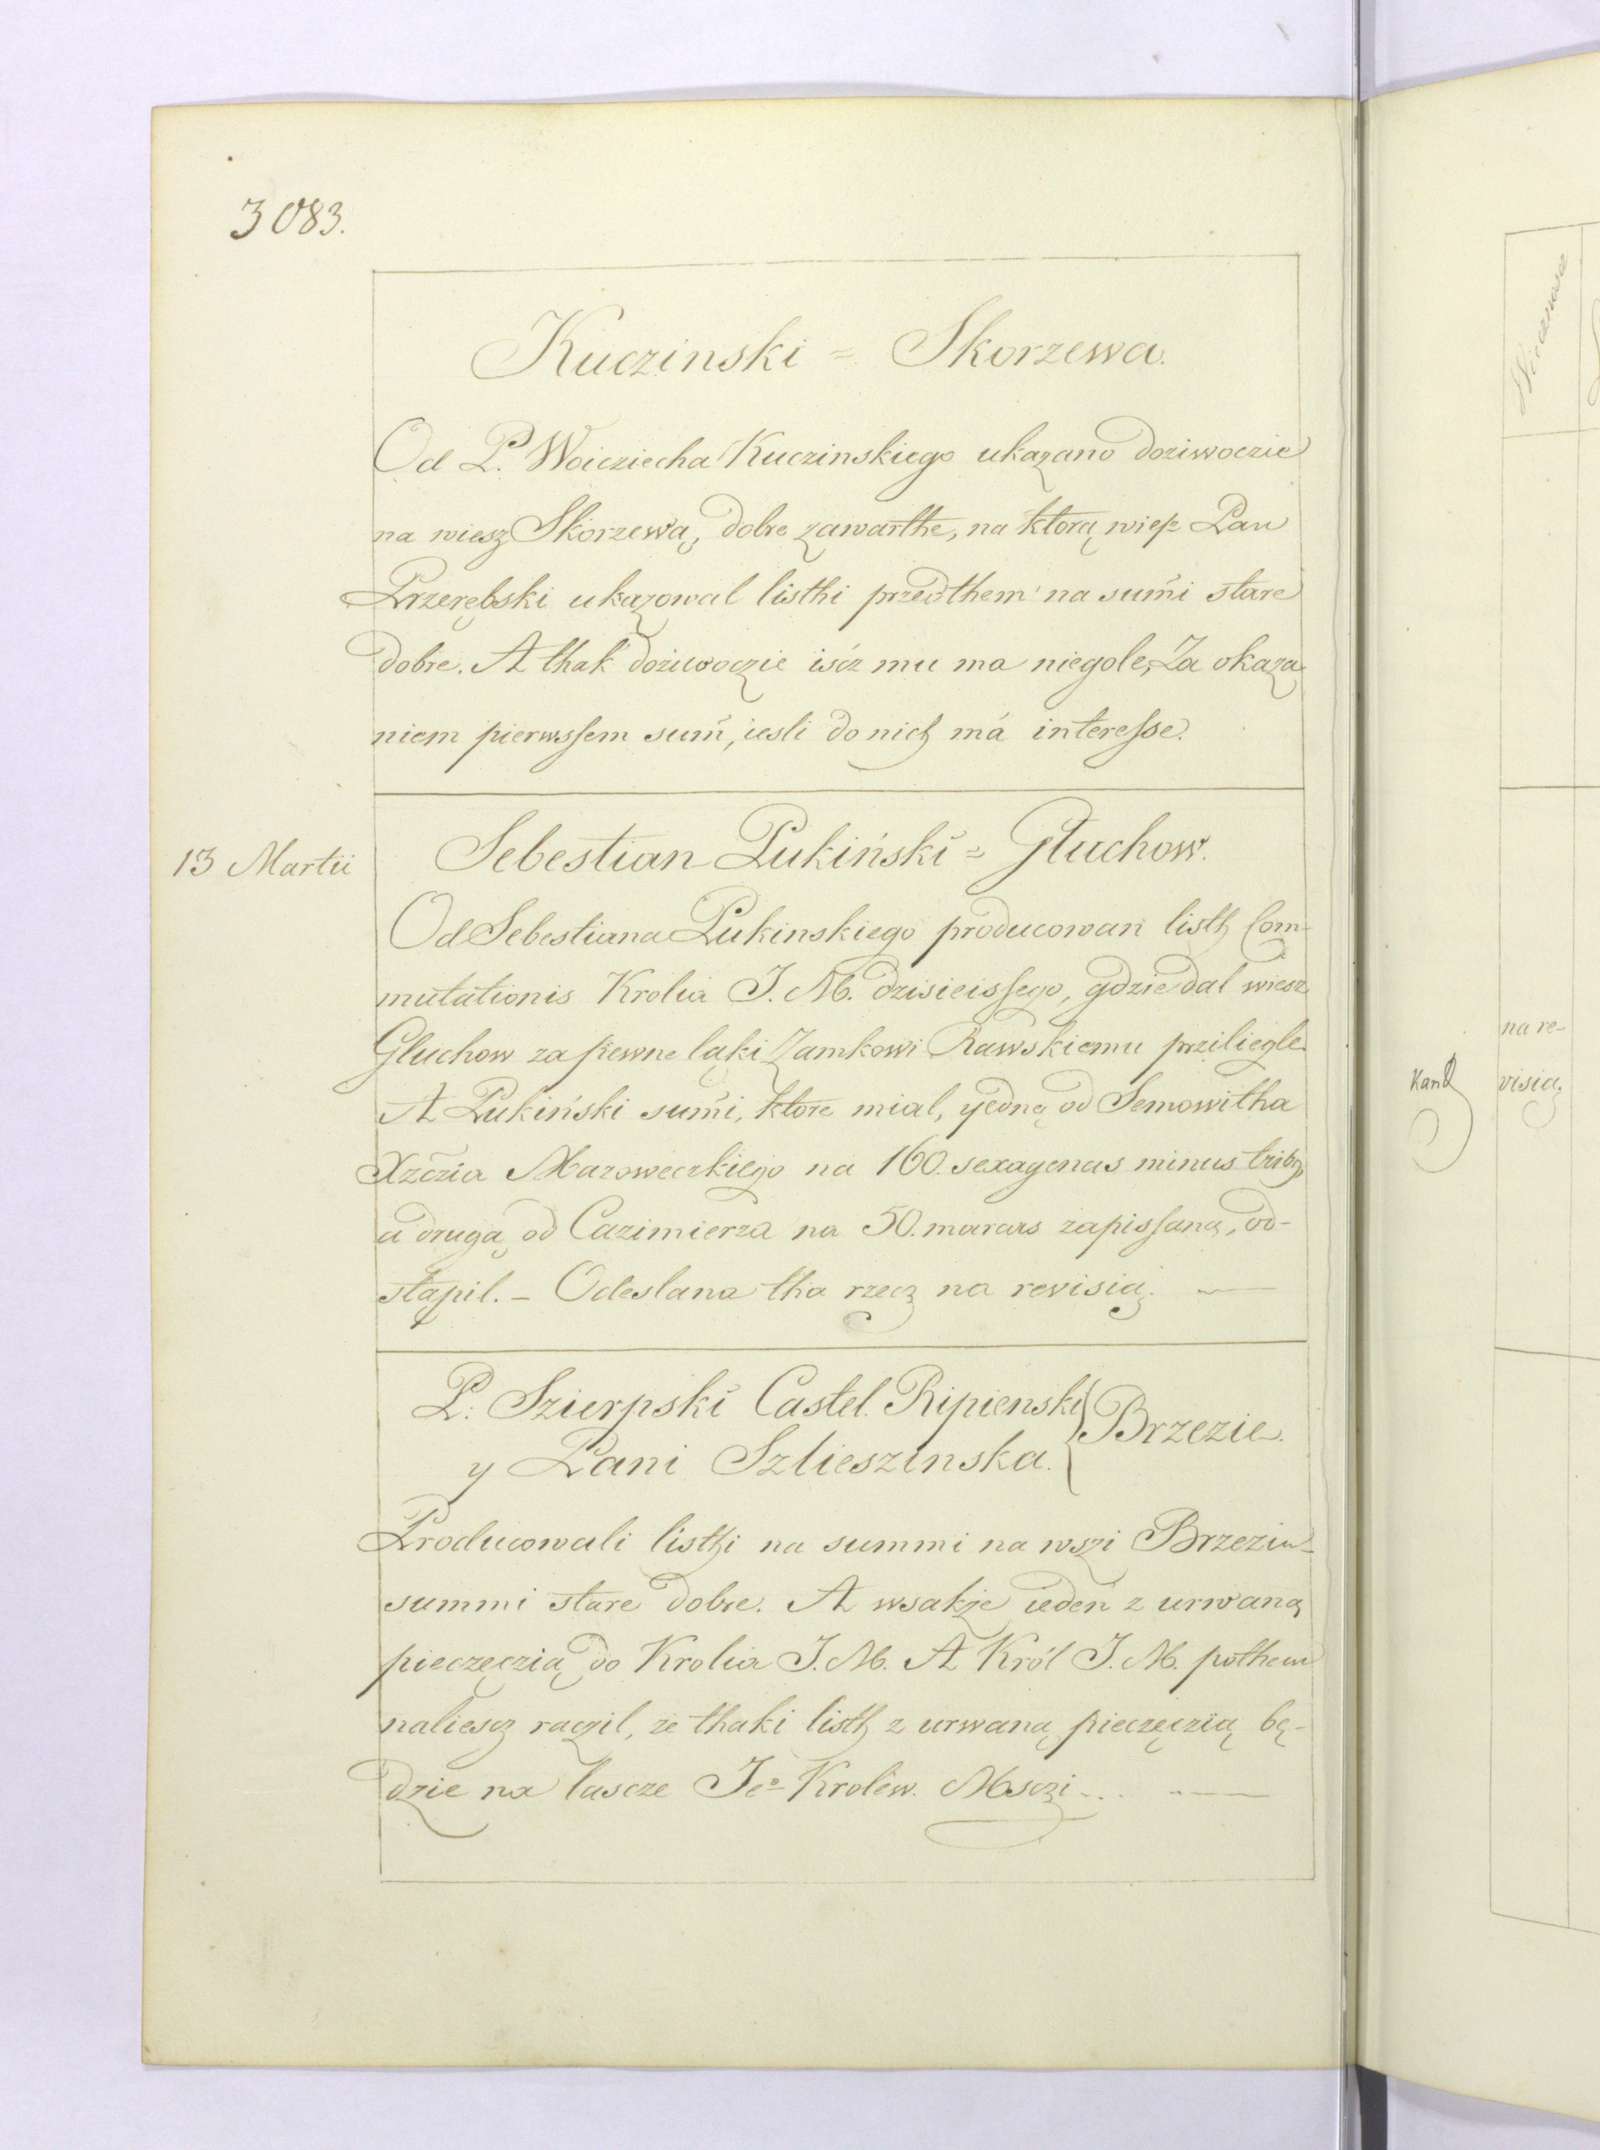 3083.
Kuczinski = Skorzewa.
Od P. Woicziecha Kuczinskiego ukazano doziwoczie
na wiesz Skorzewą, dobre zawarthe, na ktorą wiesz Pan
Przerębski ukazowal listhi przedthem na sum̃i stare
dobre. A thak dożiwoczie iśćz mu ma niegole, Za okaza,
niem pierwssem sum̃, iesli do nich má interesse.
13 Martii
Sebestian Lukiński = Głuchow.
Od Sebestiana Lukinskiego producowan listh Com-
mutationis Krolia J. M. dzisieissego, gdzie dal wiesz
Gluchow za pewne ląki Zamkowi Rawskiemu prziliegle.
A Lukiński sum̃i, ktore mial, yedną od Semowitha
Xzczia Mazoweczkiego na 160. sexagenas minus trib9,
a drugą od Cazimierza na 50. marcas zapissaną, od-
stąpil. – Odeslana tha rzecz na revisią.
P. Szierpski Castel. Ripienski
y Pani Szlieszinska.
} Brzezie.
Producowali listhi na summi na wszi Brzeziu-
summi stare dobre. A wsakże ieden z urwaną
pieczęczią do Krolia J. M. A Król J. M. pothem
naliescz raczil, że thaki listh z urwaną pieczęczią bę-
dzie na lascze Jeo Krolew. Msczi...
na re-
visią.